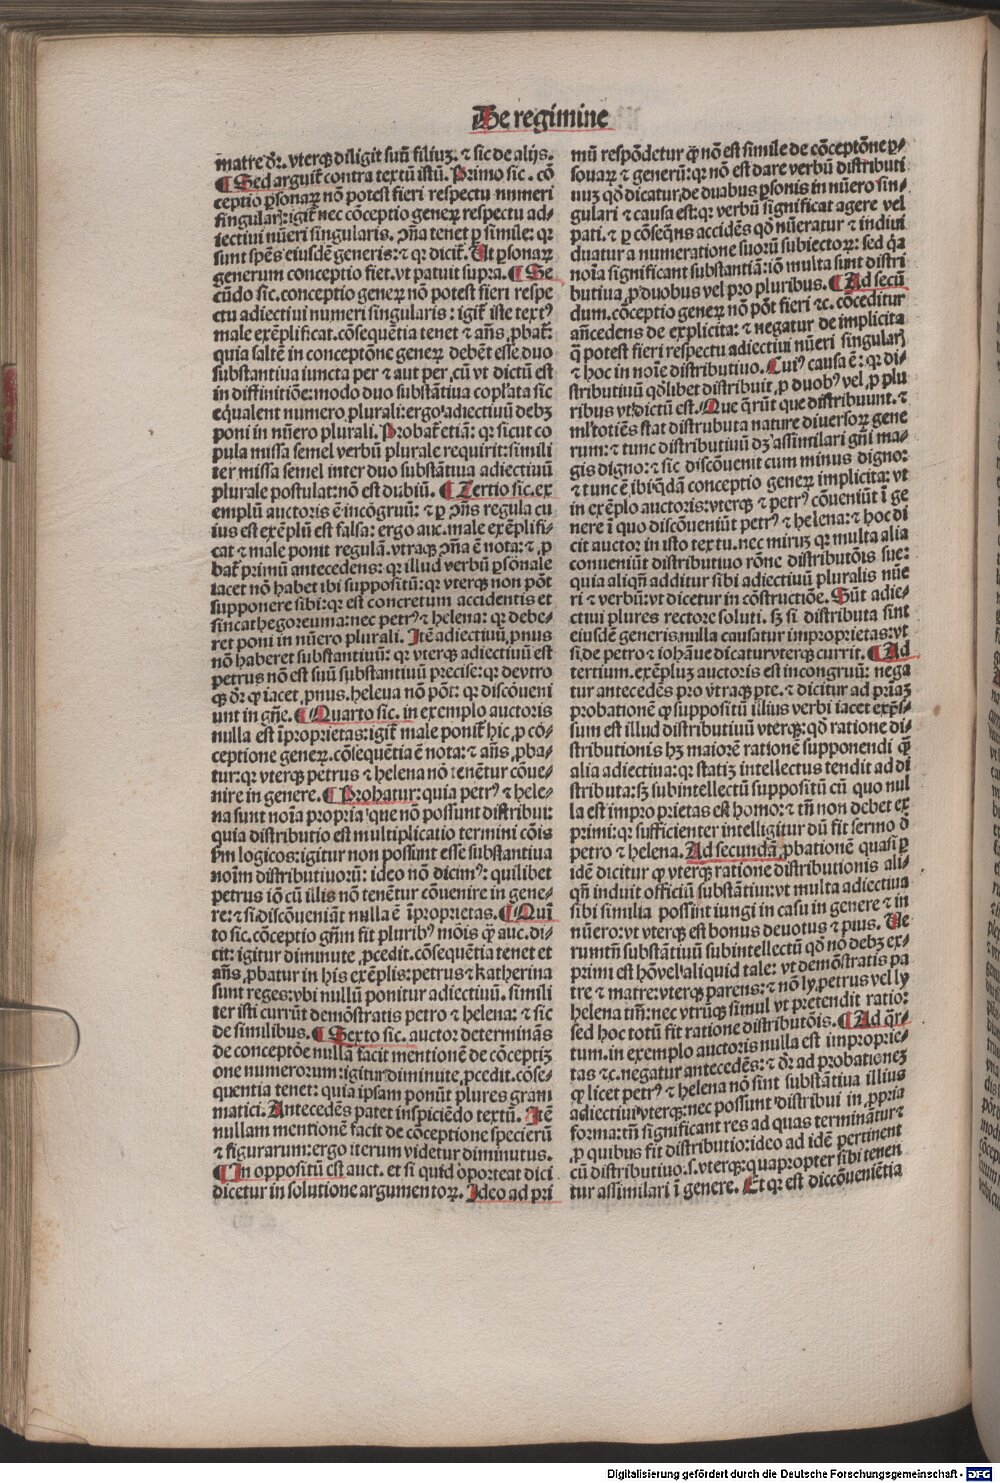 De regimine
matre dr̄. vterqꝫ diligit suū filiuꝫ. ⁊ sic de alijs.
¶ Sed arguit̄ contra textū istū. Primo sic. cō
ceptio ꝑsonaꝝ nō potest fieri respectu numeri
singularꝭ: igit̄ nec cōceptio geneꝝ respectu ad-
iectiui nūeri singularis. ꝯn̄a tenet ꝑ simile: qꝛ
sunt spēs eiusdē generis: ⁊ qꝛ dicit̄. Ut ꝑsonaꝝ
generum conceptio fiet. vt patuit supra. ¶ Se
cūdo sic. conceptio geneꝝ nō potest fieri respe
ctu adiectiui numeri singularis: igit̄ iste textꝰ
male exēplificat. cōsequētia tenet ⁊ an̄s ꝓbat̄:
quia saltē in conceptōne geneꝝ debēt esse duo
substantiua iuncta per ⁊ aut per, cū vt dictū est
in diffinitiōe: modo duo substātiua copl̄ata sic
eq̄ualent numero plurali: ergo adiectiuū debꝫ
poni in nūero plurali. Probat̄ etiā: qꝛ sicut co
pula missa semel verbū plurale requirit: simili
ter missa semel inter duo substātiua adiectiuū
plurale postulat: nō est dubiū. ¶ Tertio sic. ex
emplū auctoris ē incōgruū: ⁊ ꝑ ꝯn̄s regula cu
ius est exēplū est falsa: ergo auc. male exēplifi-
cat ⁊ male ponit regulā. vtraqꝫ ꝯn̄a ē nota: ⁊ ꝓ
bat̄ primū antecedens: qꝛ illud verbū ꝑsonale
iacet nō habet ibi suppositū: qꝛ vterqꝫ non pōt
supponere sibi: qꝛ est concretum accidentis et
sincathegoreuma: nec petrꝰ ⁊ helena: qꝛ debe-
ret poni in nūero plurali. Itē adiectiuū ꝓnus
nō haberet substantiuū: qꝛ vterqꝫ adiectiuū est
petrus nō est suū substantiuū precise: qꝛ devtro
qꝫ dr̄ ꝙ iacet ꝓnus. helena nō pōt: qꝛ discōueni
unt in gn̄e. ¶ Quarto sic. in exemplo auctoris
nulla est īproprietas: igit̄ male ponit̄ hic ꝓ cō-
ceptione geneꝝ. cōsequētia ē nota: ⁊ an̄s ꝓba-
tur: qꝛ vterqꝫ petrus ⁊ helena nō tenētur cōue-
nire in genere. ¶ Probatur: quia petrꝰ ⁊ hele-
na sunt noīa propria que nō possunt distribui:
quia distributio est multiplicatio termini cōis
ẜm logicos: igitur non possunt esse substantiua
noīm distributiuorū: ideo nō dicimꝰ: quilibet
petrus iō cū illis nō tenētur cōuenire in gene-
re: ⁊ si discōueniāt nulla ē īproprietas. ¶ Quin
to sic. cōceptio gn̄m fit pluribꝰ mōis ꝙ̄ auc. di-
cit: igitur diminute ꝓcedit. cōsequētia tenet et
an̄s ꝓbatur in his exēplis: petrus ⁊ katherina
sunt reges: vbi nullū ponitur adiectiuū. simili
ter isti currūt demōstratis petro ⁊ helena: ⁊ sic
de similibus. ¶ Sexto sic. auctor determināns
de conceptōe nullā facit mentionē de cōceptiꝫ
one numerorum: igitur diminute ꝓcedit. cōse-
quentia tenet: quia ipsam ponūt plures gram
matici. Antecedēs patet inspiciēdo textū. Itē
nullam mentionem facit de cōceptione specierū
⁊ figurarum: ergo iterum videtur diminutus.
¶ In oppositū est auct. et si quid oporteat dici
dicetur in solutione argumentoꝝ. Ideo ad pri
mū respōdetur ꝙ nō est simile de cōceptōne ꝑ-
sonaꝝ ⁊ generū: qꝛ nō est dare verbū distributi
uuꝫ qd̄ dicatur de duabus ꝑsonis in nūero sin-
gulari ⁊ causa est: qꝛ verbū significat agere vel
pati. ⁊ ꝑ cōseqn̄s accidēs qd̄ nūeratur ⁊ indiui
duatur a numeratione suorū subiectoꝝ: sed qꝛia
noīa significant substantiā: iō multa sunt distri
butiua ꝓ duobus vel pro pluribus. ¶ Ad secū
dum. cōceptio geneꝝ nō pōt fieri ⁊c. cōceditur
an̄cedens de explicita: ⁊ negatur de implicita
q̄ potest fieri respectu adiectiui nūeri singularꝭ
⁊ hoc in noīe distributiuo. Cuiꝰ causa ē: qꝛ di-
stributiuū qd̄libet distribuit ꝓ duobꝰ vel ꝓ plu
ribus vt dictū est. Que qr̄ūt que distribuunt. ⁊
ml̄totiēs stat distrubuta nature diuersoꝝ gene
rum: ⁊ tunc distributiuū dꝫ assimilari gn̄i ma-
gis digno: ⁊ sic discōuenit cum minus digno:
⁊ tunc ē ibi qd̄ā conceptio geneꝝ implicita: vt
in exēplo auctoris: vterqꝫ ⁊ petrꝰ cōueniūt ī ge
nere ī quo discōueniūt petrꝰ ⁊ helena: ⁊ hoc di
cit auctor in isto textu. nec miruꝫ qꝛ multa alia
conueniūt distributiuo rōne distributōis sue:
quia aliqn̄ additur sibi adiectiuū pluralis nūe
ri ⁊ verbū: vt dicetur in cōstructiōe. Sūt adie-
ctiui plures rectore soluti. sꝫ si distributa sint
eiusdē generis, nulla causatur improprietas: vt
si, de petro ⁊ iohāne dicatur vterqꝫ currit. ¶ Ad
tertium. exēpluꝫ auctoris est incongruū: nega
tur antecedēs pro vtraqꝫ ꝑte. ⁊ dicitur ad pri̅aꝫ
probationē ꝙ suppositū illius verbi iacet exp̄s-
sum est illud distributiuū vterqꝫ: qd̄ ratione di-
stributionis hꝫ maiorē rationē supponendi ꝙ̄
alia adiectiua: qꝛ statiꝫ intellectus tendit ad di
stributa: sꝫ subintellectū suppositū cū quo nul
la est improprietas est homo: ⁊ tn̄ non debet ex
primi: qꝛ sufficienter intelligitur dū fit sermo d̄
petro ⁊ helena. Ad secundā ꝓbationē quasi ꝑ
idē dicitur ꝙ vterqꝫ ratione distributionis ali-
qn̄ induit officiū substātiui: vt multa adiectiua
sibi similia possint iungi in casu in genere ⁊ in
nūero: vt vterqꝫ est bonus deuotus ⁊ pius. Ue
rumtn̄ substātiuū subintellectū qd̄ nō debꝫ ex-
primi est hō vel aliquid tale: vt demōstratis pa
tre ⁊ matre: vterqꝫ parens: ⁊ nō ly petrus vel ly
helena tm̄: nec vtrūqꝫ simul vt pretendit ratio:
sed hoc totū fit ratione distributōis. ¶ Ad qr̄-
tum. in exemplo auctoris nulla est improprie-
tas ⁊c. negatur antecedēs: ⁊ dr̄ ad probationeꝫ
ꝙ licet petrꝰ ⁊ helena nō sint substātiua illius
adiectiui vterqꝫ: nec possunt distribui in ꝓpria
forma: tn̄ significant res ad quas terminātur ⁊
ꝓ quibus fit distributio: ideo ad idē pertinent
cū distributiuo .s. vterqꝫ: quapropter sibi tenen
tur assimilari ī genere. Et qꝛ est diccōueniētia